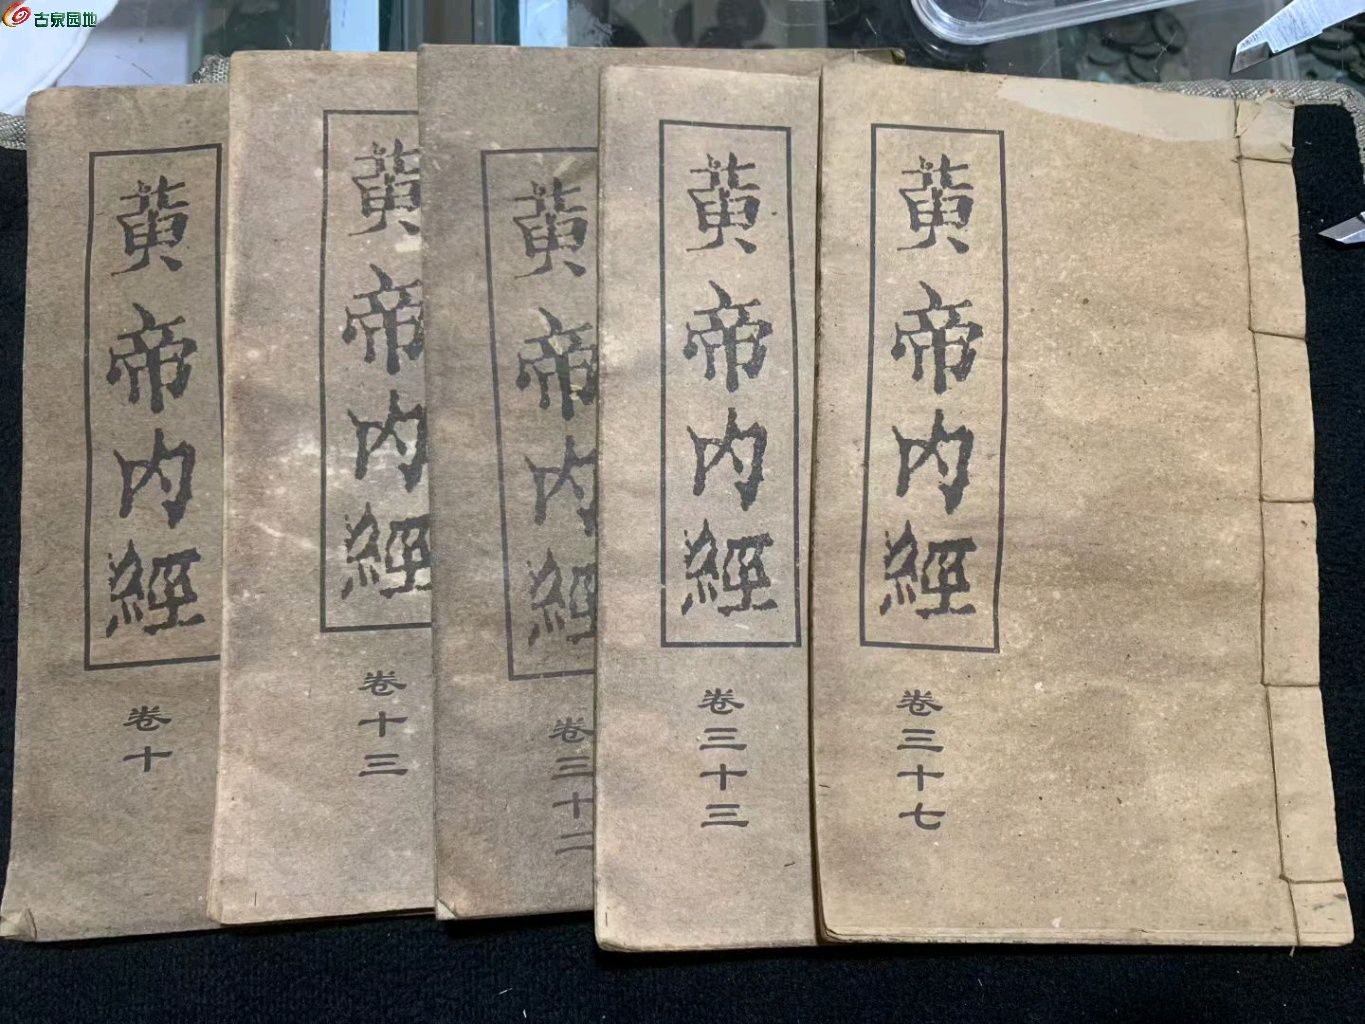 古泉园地
黄帝内經
卷十
黄帝内經
卷十三
黄帝内經
卷三十二
黄帝内經
卷三十三
黄帝内經
卷三十七